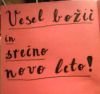 Vesel božič
in
srečno
novo leto!